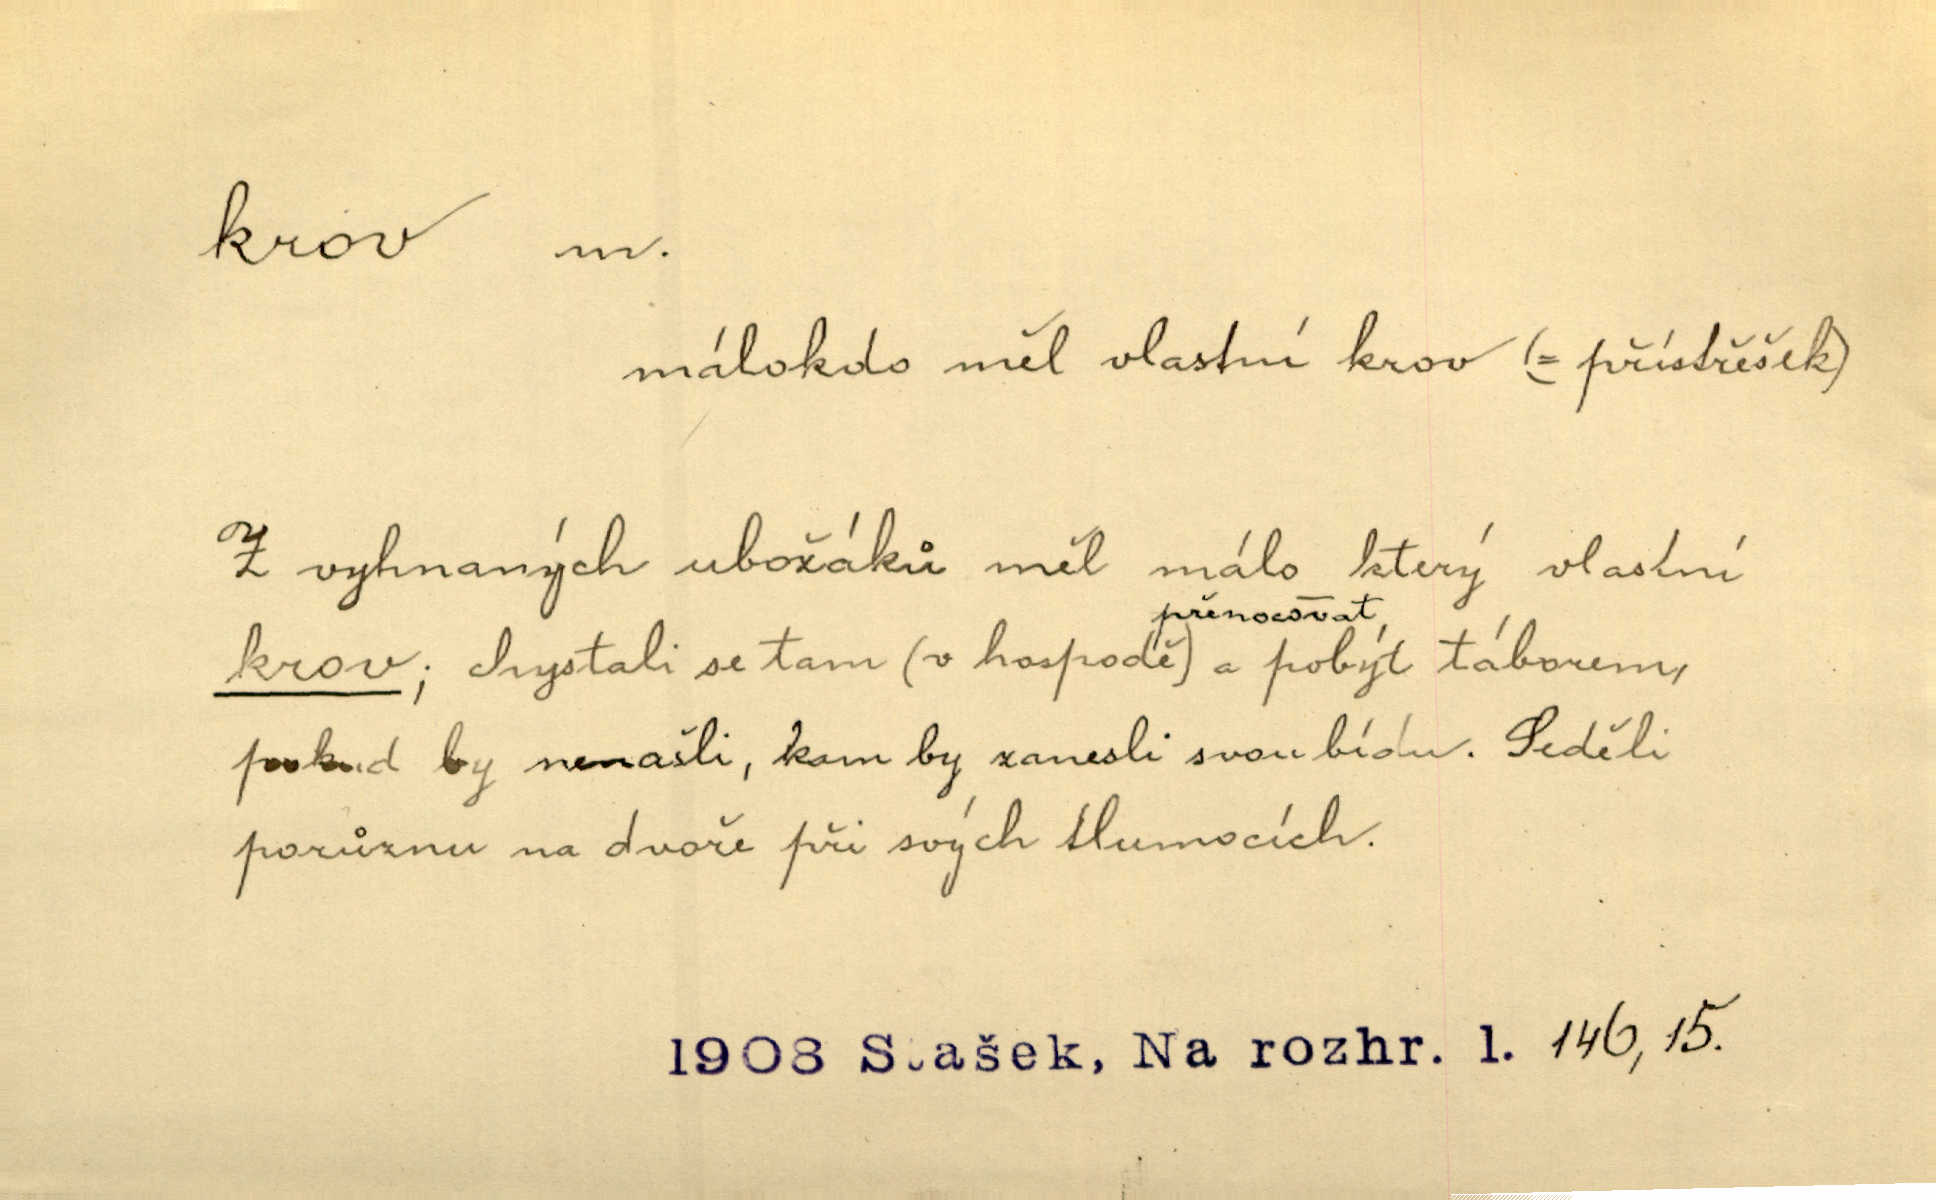 krov m.
málokdo měl vlastní krov (= přístřešek)
Z vyhnaných ubožáků měl málo který vlastní
přenocovat,
krov; chystali se tam (v hospodě) a pobýt táborem,
pokud by nenašli, kam by zanesli svou bídu. Seděli
porůznu na dvoře při svých tlumocích.
1908 Stašek, Na rozhr. 1. 146, 15.